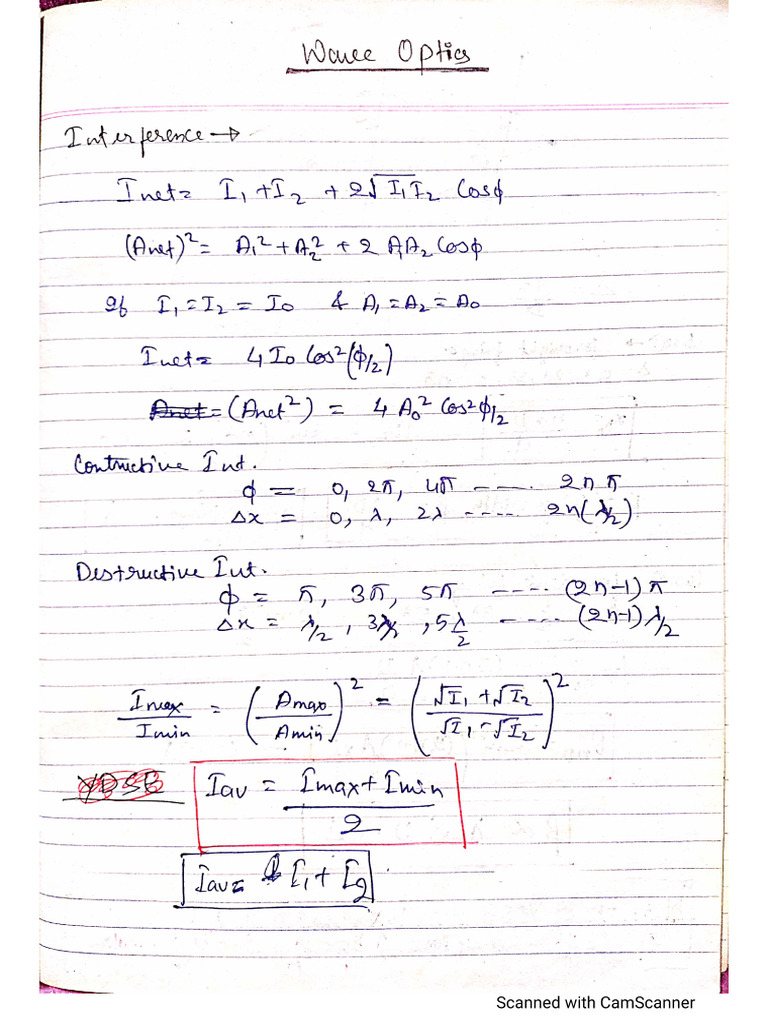 Wave Optics
Interference →
Inet = I₁ + I₂ + 2√I₁I₂ Cosϕ
(Anet)² = A₁² + A₂² + 2 A₁A₂ Cosϕ
If I₁ = I₂ = I₀ & A₁ = A₂ = A₀
Inet = 4 I₀ Cos²(ϕ/2)
Anet = (Anet²) = 4 A₀² Cos² ϕ/2
Contructive Int.
ϕ = 0, 2π, 4π ---- 2nπ
Δx = 0, λ, 2λ ---- 2n(λ/2)
Destructive Int.
ϕ = π, 3π, 5π ---- (2n-1)π
Δx = λ/2, 3λ/2, 5λ/2 ---- (2n-1)λ/2
Imax/Imin = (Amax/Amin)² = ((√I₁ + √I₂)/(√I₁ - √I₂))²
YDSE
Iav = (Imax + Imin)/2
Iav = I₁ + I₂
Scanned with CamScanner